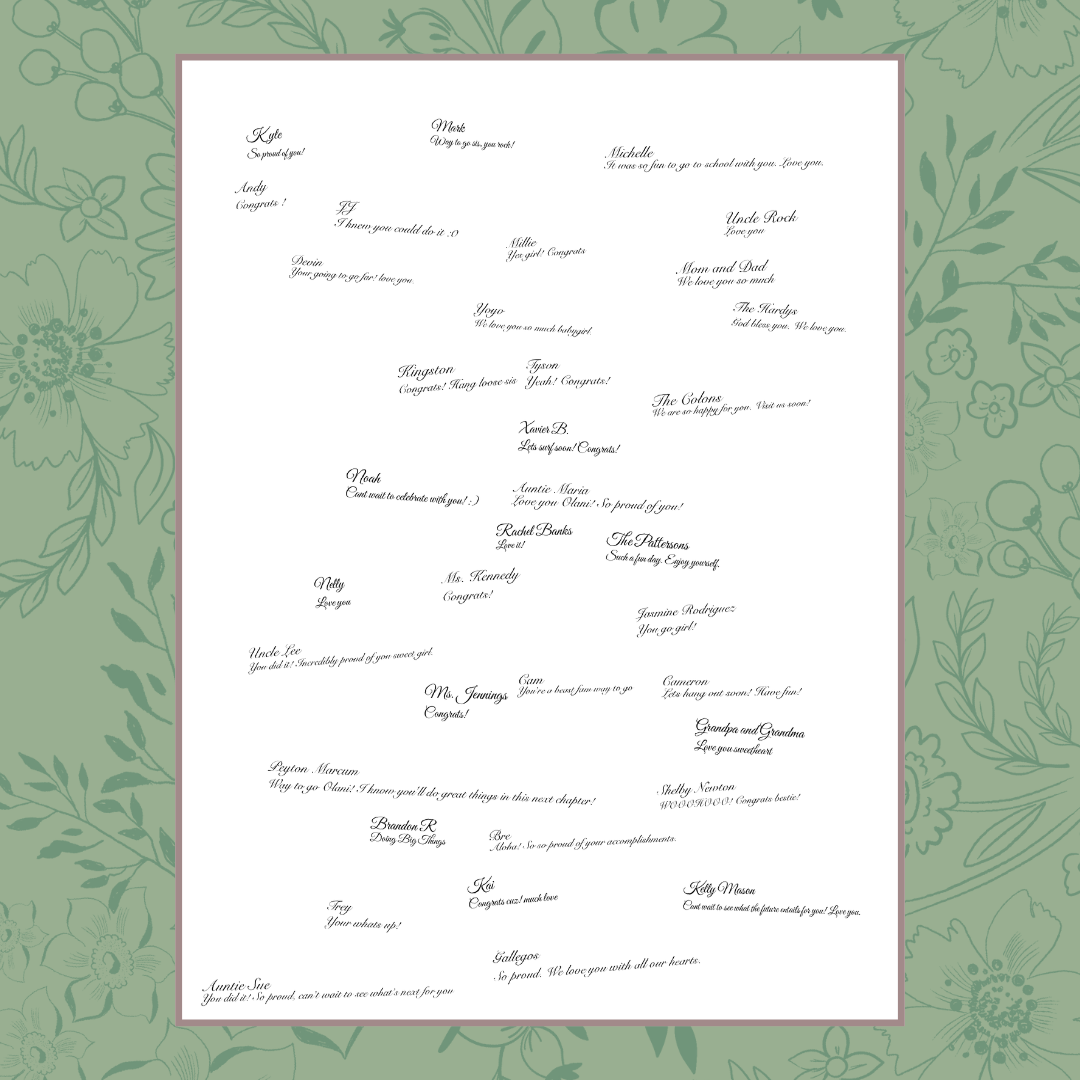 Kyle
So proud of you!
Mark
Way to go sis, you rock!
Michelle
It was so fun to go to school with you. Love you.
Andy
Congrats !
JJ
I knew you could do it :O
Uncle Rock
Love you
Millie
Yes girl! Congrats
Devin
Your going to go far! love you.
Mom and Dad
We love you so much
Yoyo
We love you so much babygirl.
The Hardys
God bless you. We love you.
Kingston
Congrats! Hang loose sis
Tyson
Yeah! Congrats!
The Colons
We are so happy for you. Visit us soon!
Xavier B.
Lets surf soon! Congrats!
Noah
Cant wait to celebrate with you! :)
Auntie Maria
Love you Olani! So proud of you!
Rachel Banks
Love it!
The Pattersons
Such a fun day. Enjoy yourself.
Ms. Kennedy
Congrats!
Nelly
Love you
Jasmine Rodriguez
You go girl!
Uncle Lee
You did it! Incredibly proud of you sweet girl.
Cam
You're a beast fam way to go
Cameron
Lets hang out soon! Have fun!
Ms. Jennings
Congrats!
Grandpa and Grandma
Love you sweetheart
Peyton Marcum
Way to go Olani! I know you'll do great things in this next chapter!
Shelby Newton
WOOOHOOO! Congrats bestie!
Brandon R
Doing Big Things
Bre
Aloha! So so proud of your accomplishments.
Kai
Congrats cuz! much love
Kelly Mason
Cant wait to see what the future entails for you! Love you.
Trey
Your whats up!
Gallegos
So proud. We love you with all our hearts.
Auntie Sue
You did it! So proud, can't wait to see what's next for you